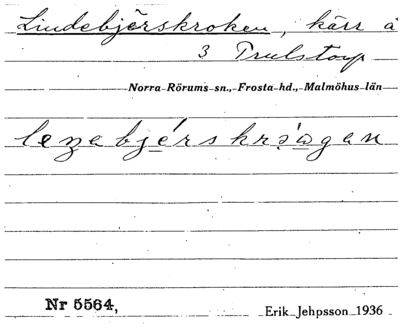 Lindebjörskroken, kärr å
3 Trulstorp
Norra Rörums sn., Frosta hd., Malmöhus län
Nr 5564,
Erik Jehpsson 1936